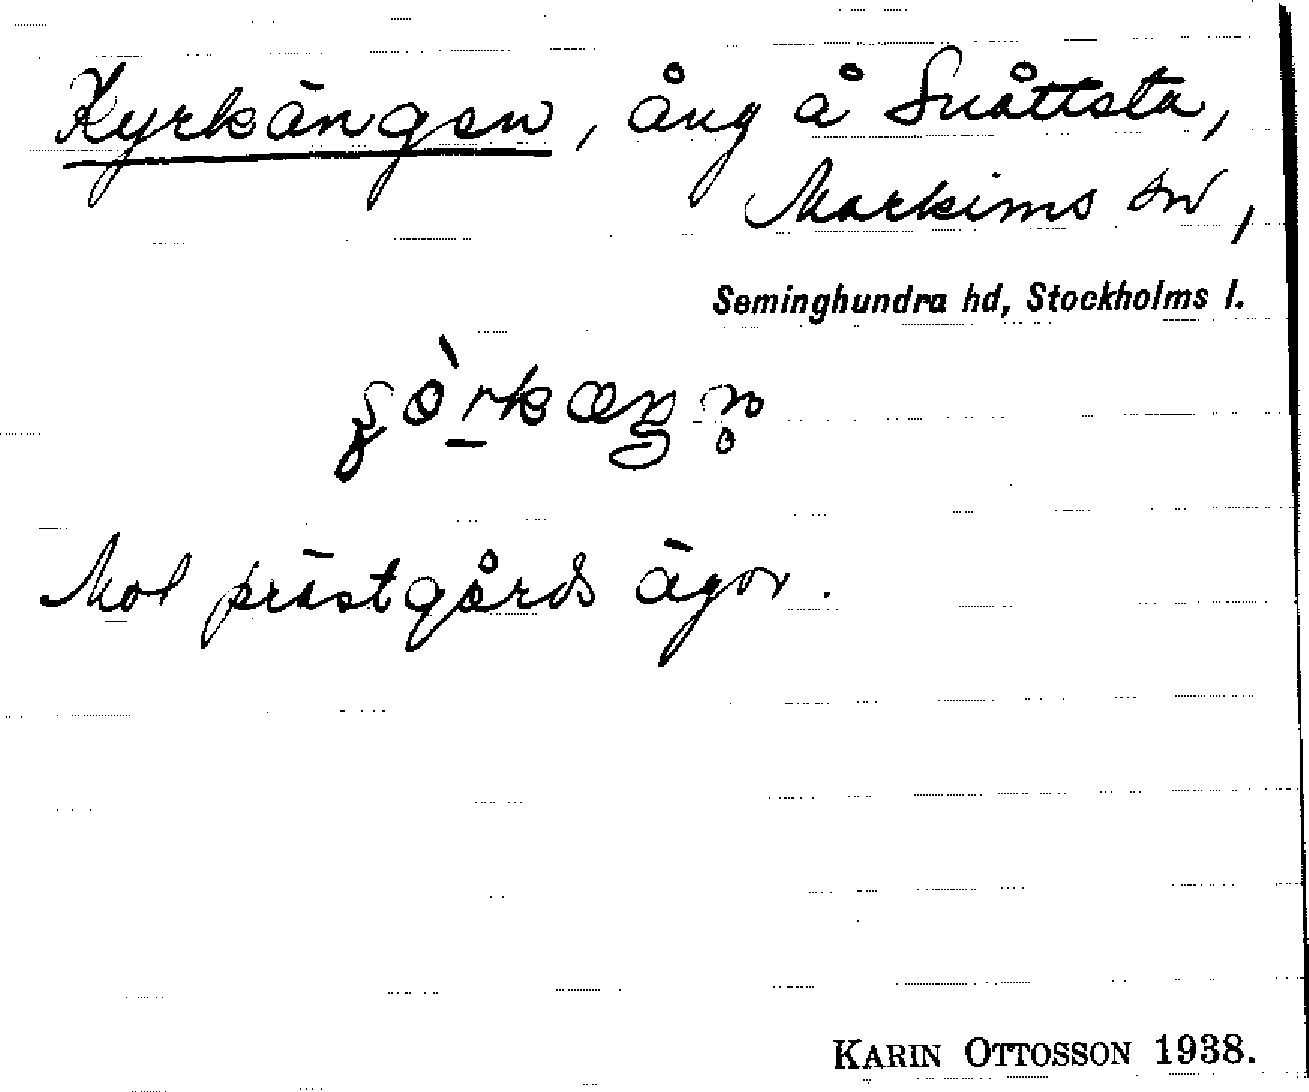 Kyrkängen, äng å Snåttsta,
Markims sn,
Seminghundra hd, Stockholms l.
Mot prästgårds ägor.
KARIN OTTOSSON 1938.